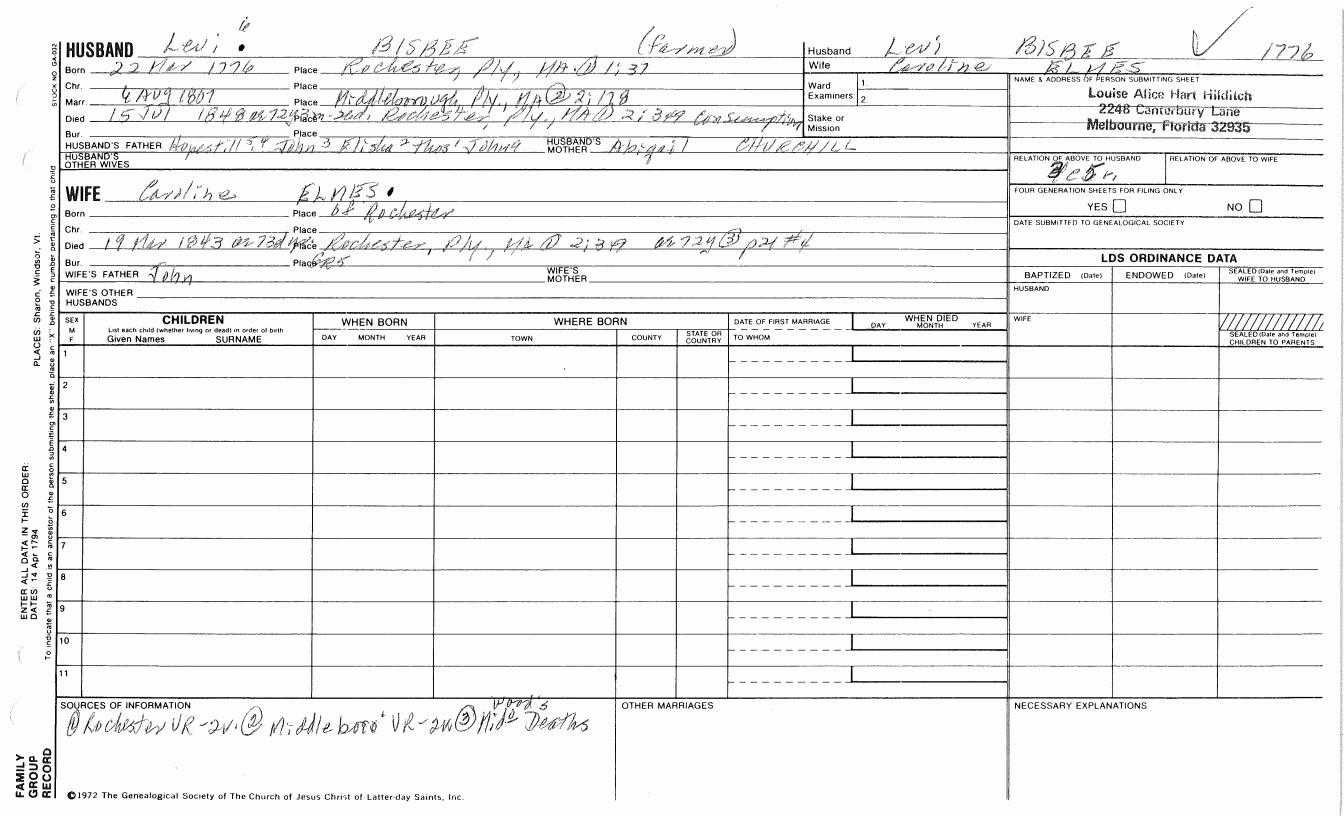 HUSBAND Levi 6 • BISBEE (farmer)
Born 22 Mar 1776 Place Rochester, Ply, MA ① 1:37
Chr. Place
Marr. 6 Aug 1807 Place Middleborough, Ply, MA ② 2:178
Died 15 Jul 1848 Place Rochester, Ply., MA ① 2:349 Consumption
Bur. Place
HUSBAND'S FATHER John 3 Elisha 2 Thos 1 HUSBAND'S MOTHER Abigail CHURCHILL
HUSBAND'S OTHER WIVES
WIFE Caroline ELMES •
Born Place of Rochester
Chr. Place
Died 19 Mar 1843 Place Rochester, Ply, MA ① 2:349 ae 72y ③ p21 #4
Bur. Place GR5
WIFE'S FATHER John WIFE'S MOTHER
WIFE'S OTHER HUSBANDS
Husband Levi BISBEE 1776
Wife Caroline ELMES
Ward Examiners 1 2
Stake or Mission
NAME & ADDRESS OF PERSON SUBMITTING SHEET
Louise Alice Hart Hilditch
2246 Canterbury Lane
Melbourne, Florida 32935
RELATION OF ABOVE TO HUSBAND RELATION OF ABOVE TO WIFE
FOUR GENERATION SHEETS FOR FILING ONLY
YES NO
DATE SUBMITTED TO GENEALOGICAL SOCIETY
LDS ORDINANCE DATA
BAPTIZED (Date) ENDOWED (Date) SEALED (Date and Temple) WIFE TO HUSBAND
HUSBAND
WIFE
SEALED (Date and Temple) CHILDREN TO PARENTS
SEX M F
CHILDREN
List each child (whether living or dead) in order of birth
Given Names SURNAME
WHEN BORN
DAY MONTH YEAR
WHERE BORN
TOWN COUNTY STATE OR COUNTRY
DATE OF FIRST MARRIAGE
TO WHOM
WHEN DIED
DAY MONTH YEAR
1
2
3
4
5
6
7
8
9
10
11
SOURCES OF INFORMATION
① Rochester VR-2v. ② Middleboro' VR-2v. ③ Wood's Mido Deaths
OTHER MARRIAGES
NECESSARY EXPLANATIONS
©1972 The Genealogical Society of The Church of Jesus Christ of Latter-day Saints, Inc.
STOCK NO. GA-032
To indicate that a child is an ancestor of the person submitting the sheet, place an "X" behind the number pertaining to that child
PLACES: Sharon, Windsor, Vt.
ENTER ALL DATA IN THIS ORDER:
DATES: 14 Apr 1794
FAMILY GROUP RECORD